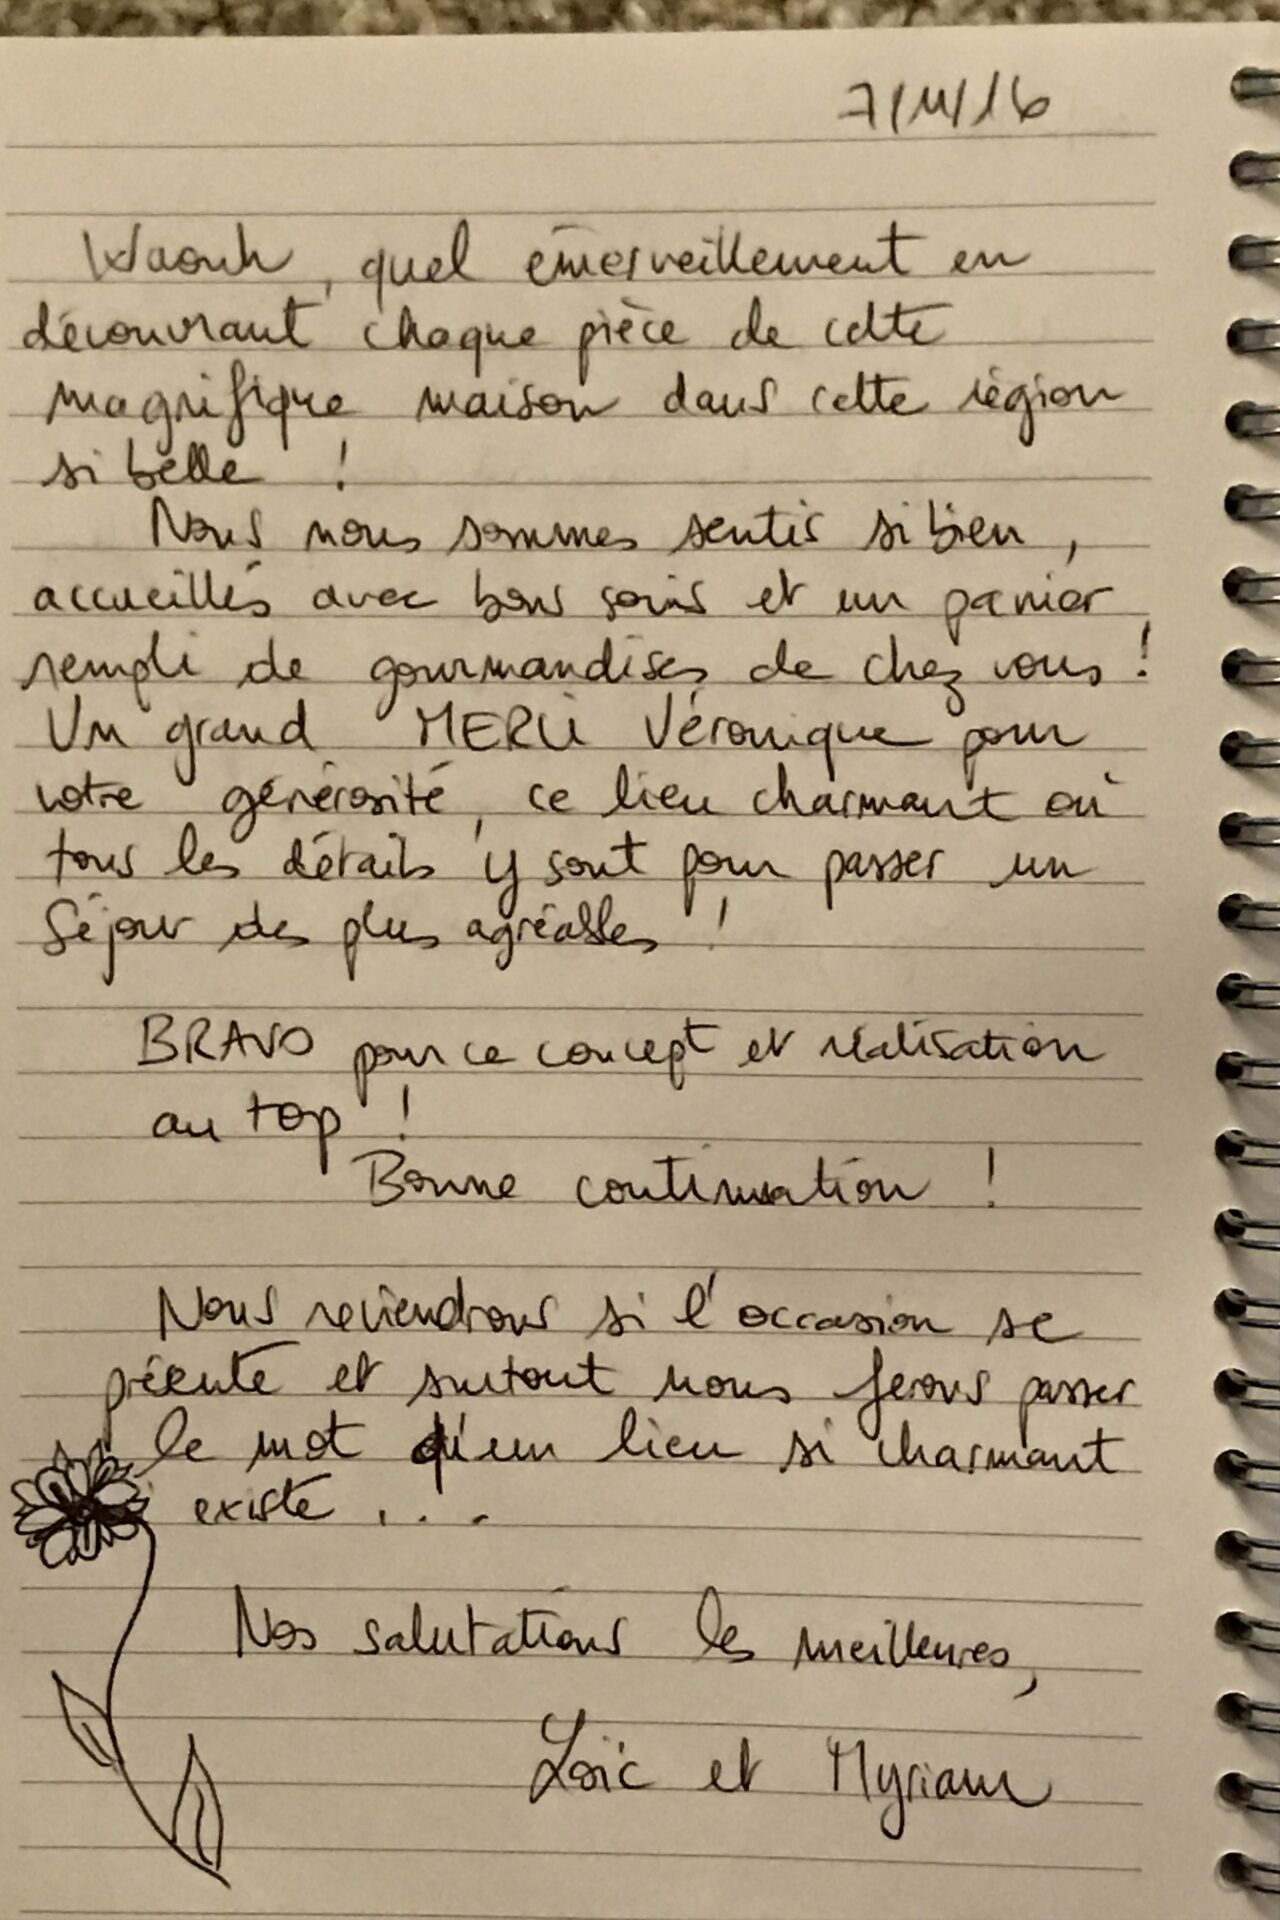 7/11/16
Waouh, quel émerveillement en
découvrant chaque pièce de cette
magnifique maison dans cette région
si belle !
Nous nous sommes sentis si bien,
accueillis avec bons soins et un panier
rempli de gourmandises de chez vous !
Un grand MERCI Véronique pour
votre générosité, ce lieu charmant où
tous les détails y sont pour passer un
séjour des plus agréables !
BRAVO pour ce concept et réalisation
au top !
Bonne continuation !
Nous reviendrons si l'occasion se
présente et surtout nous ferons passer
le mot qu'un lieu si charmant
existe ...
Nos salutations les meilleures,
Loïc et Myriam